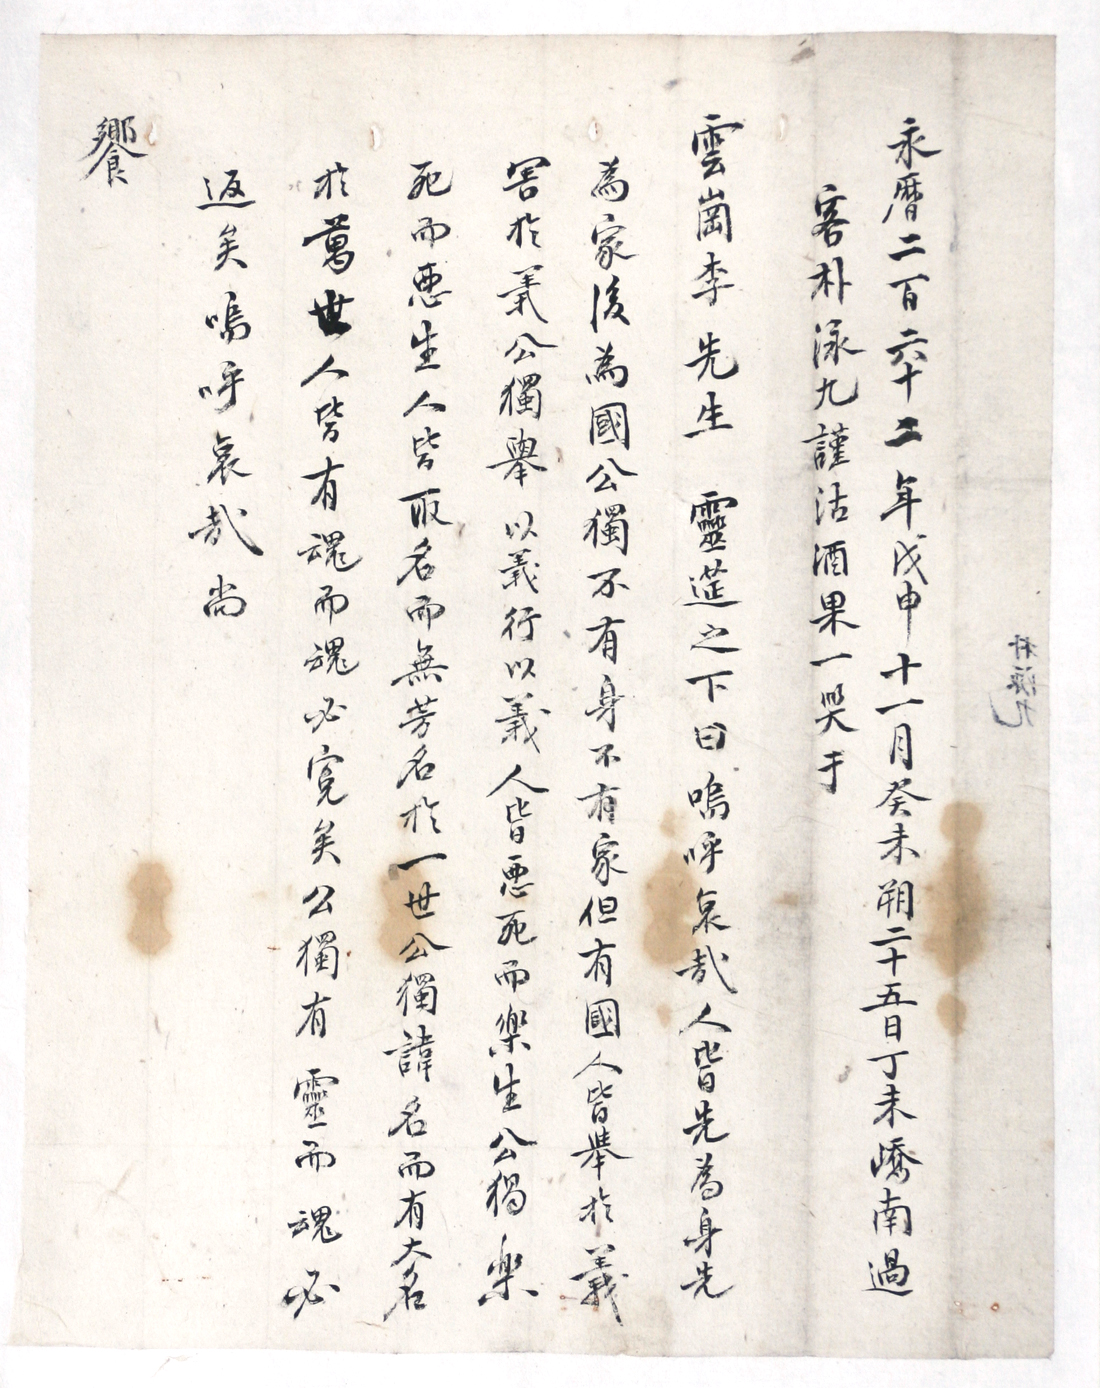 朴泳九
永曆二百六十二年戊申十一月癸未朔二十五日丁未嶠南過
客朴泳九謹沽酒果一哭于
雲崗李先生 靈筵之下曰嗚呼哀哉人皆先爲身先
爲家後爲國公獨不有身不有家但有國人皆擧於義
害於義公獨擧以義行以義人皆惡死而樂生公獨樂
死而惡生人皆取名而無芳名於一世公獨諱名而有大名
於萬世人皆有魂而魂必寃矣公獨有 靈而魂必
返矣嗚呼哀哉尙
饗